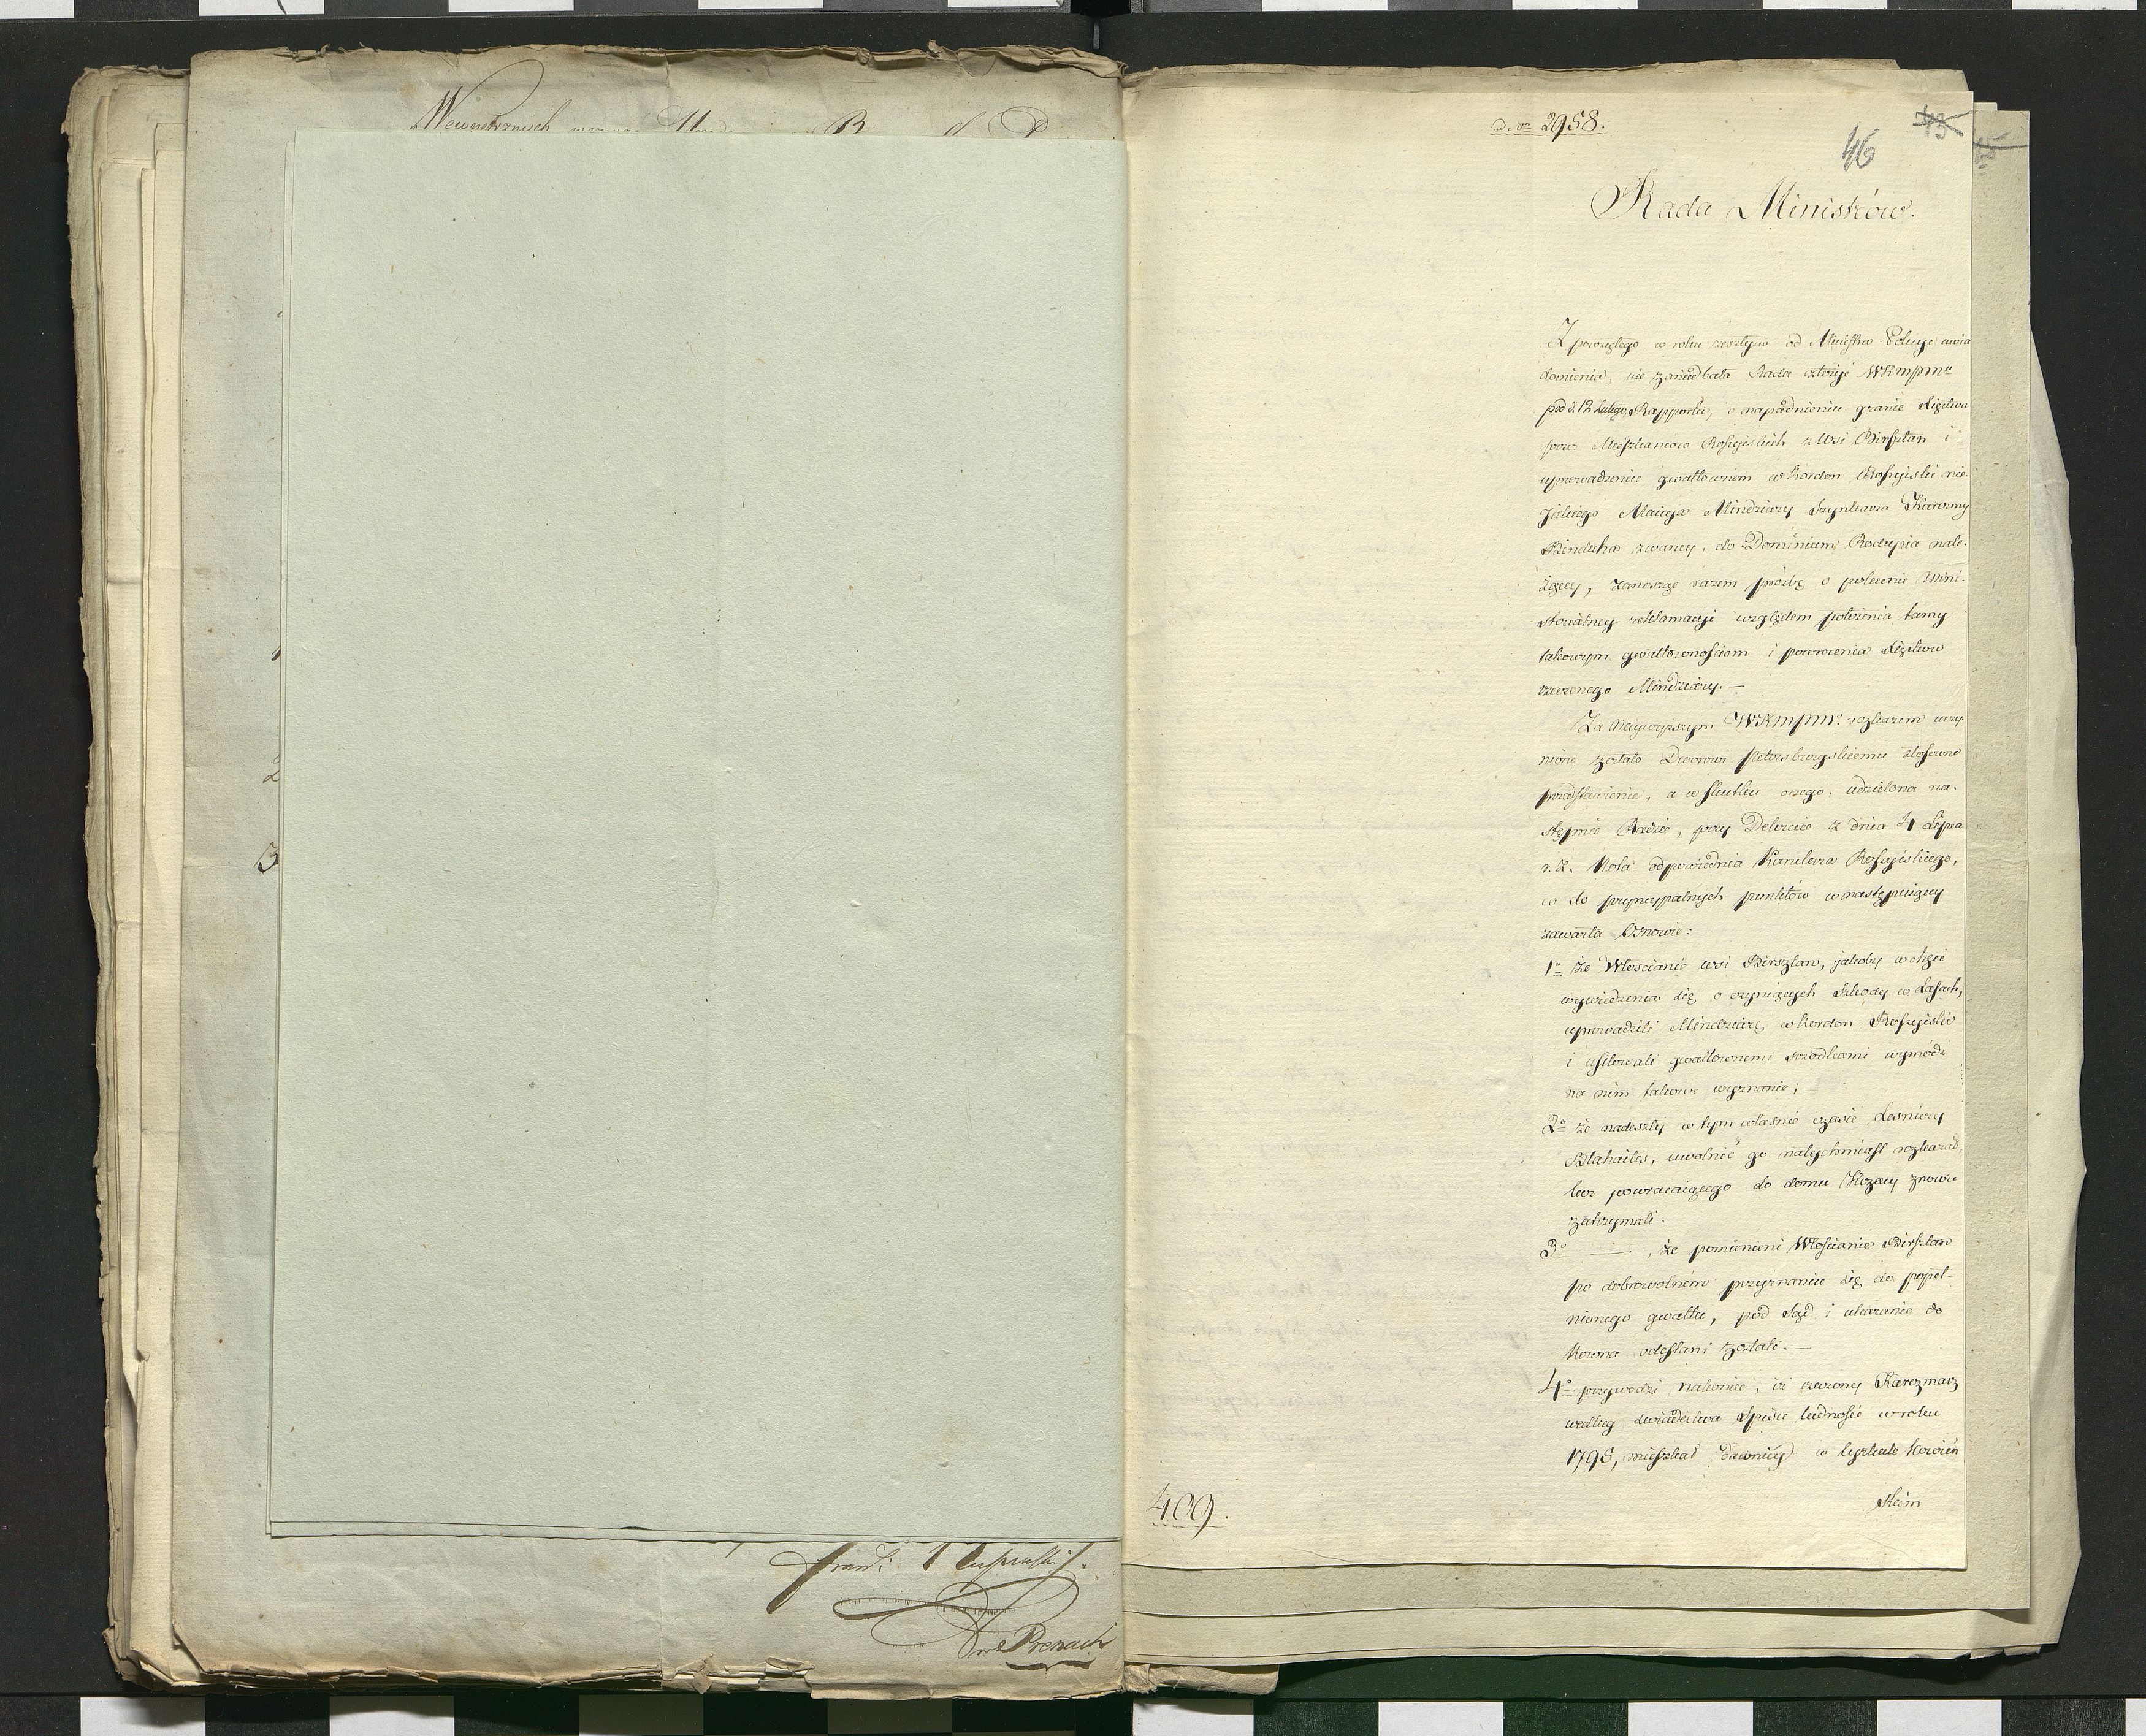 Wewnetrznych
1
2
3
Prenach
ad Nrm 2958.
43
46
Rada Ministrów.
Z powziętego w roku zeszłym od Ministra Policyi uwia
domienia, nie zaniedbała Rada złożyć WKMPMu
pod d. 12 Lutego, Rapportu, o napadnieniu granic Księstwa
przez Mieszkancow Rossyiskich z Wsi Birsztan i
uprowadzeniu gwałtownem w kordon Rossyiski nie-
jakiego Macieja Mindziary Szynkarza Karczmy
Binducha zwaney, do Dominium Rodupia nale-
żącey, zanosząc razem prózbę o polecenie Mini-
steryalney reklamacyi względem położenia tamy
takowym gwałtownościom i powrocenia Księstwu
rzeczonego Mindziary. —
Za Naywyższym WKMPMci rozkazem uczy
nione zostało Dworowi Petersburgskiemu stosowne
przedstawienie, a w skutku onego, udzielona na-
stępnie Radzie, przy Dekrecie z dnia 4 Lipca
r. z. Nota odpowiednia Kanclerza Rossyiskiego,
co do pryncypalnych punktów w następuiącey
zawarta Osnowie:
1o że Włoscianie wsi Birsztan, jakoby w chęci
wywiedzenia się o czyniących szkody w Lasach,
uprowadzili Mindziarę, w kordon Rossyiski
i usiłowali gwałtownemi srzodkami wymódz
na nim takowe wyznanie;
2o że nadeszły w tym własnie czasie Lesniczy
Blahaites, uwolnić go natychmiast rozkazał,
lecz powracaiącego do domu Kozacy znowu
zatrzymali.
3o — , że pomienieni Włościanie Birsztan
po dobrowolném przyznaniu się do popeł-
nionego gwałtu, pod Sąd i ukaranie do
Kowna odesłani zostali. —
4o przywodzi nakoniec, iż rzeczony Karczmarz
według swiadectwa Spisu ludności w roku
1795, mieszkał dawniey w cyrkule Kowień
skim
409.